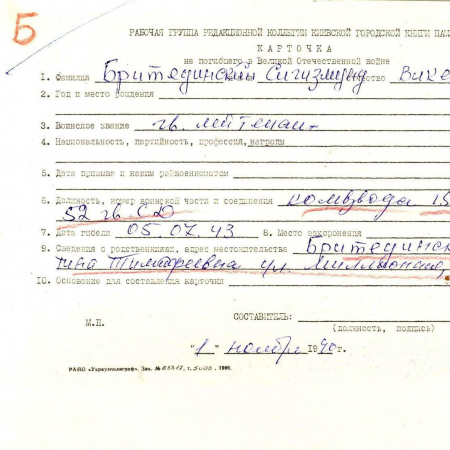 Б
РАБОЧАЯ ГРУППА РЕДАКЦИОННОЙ КОЛЛЕГИИ КИЕВСКОЙ ГОРОДСКОЙ КНИГИ ПАМ
КАРТОЧКА
на погибшего в Великой Отечественной войне
1. Фамилия Бритединский Сигизмунд Вике
2. Год и место рождения
3. Воинское звание гв. лейтенант
4. Национальность, партийность, профессия, награды
5. Дата призыва и каким райвоенкоматом
6. Должность, номер воинской части и соединения комвзвода 15
52 гв. СД
7. Дата гибели 05.07.43 8. Место захоронения
9. Сведения о родственниках, адрес местожительства Бритединск
Тимофеевна ул. Миллионная,
10. Основание для составления карточки
СОСТАВИТЕЛЬ:
М.П. (должность, подпись)
"1" ноября 1990г.
РАПО «Укрвузполиграф». Зак. 1990.